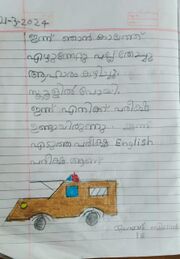 21-3-2024
ഇന്ന് ഞാൻ കാലത്ത്
എഴുന്നേറ്റു പല്ല് തേച്ചു
ആഹാരം കഴിച്ചു
സ്കൂളിൽ പോയി.
ഇന്ന് എനിക്ക് പരീക്ഷ
ഉണ്ടായിരുന്നു ഇന്ന്
എടുത്ത പരീക്ഷ English
പരീക്ഷ ആണ്